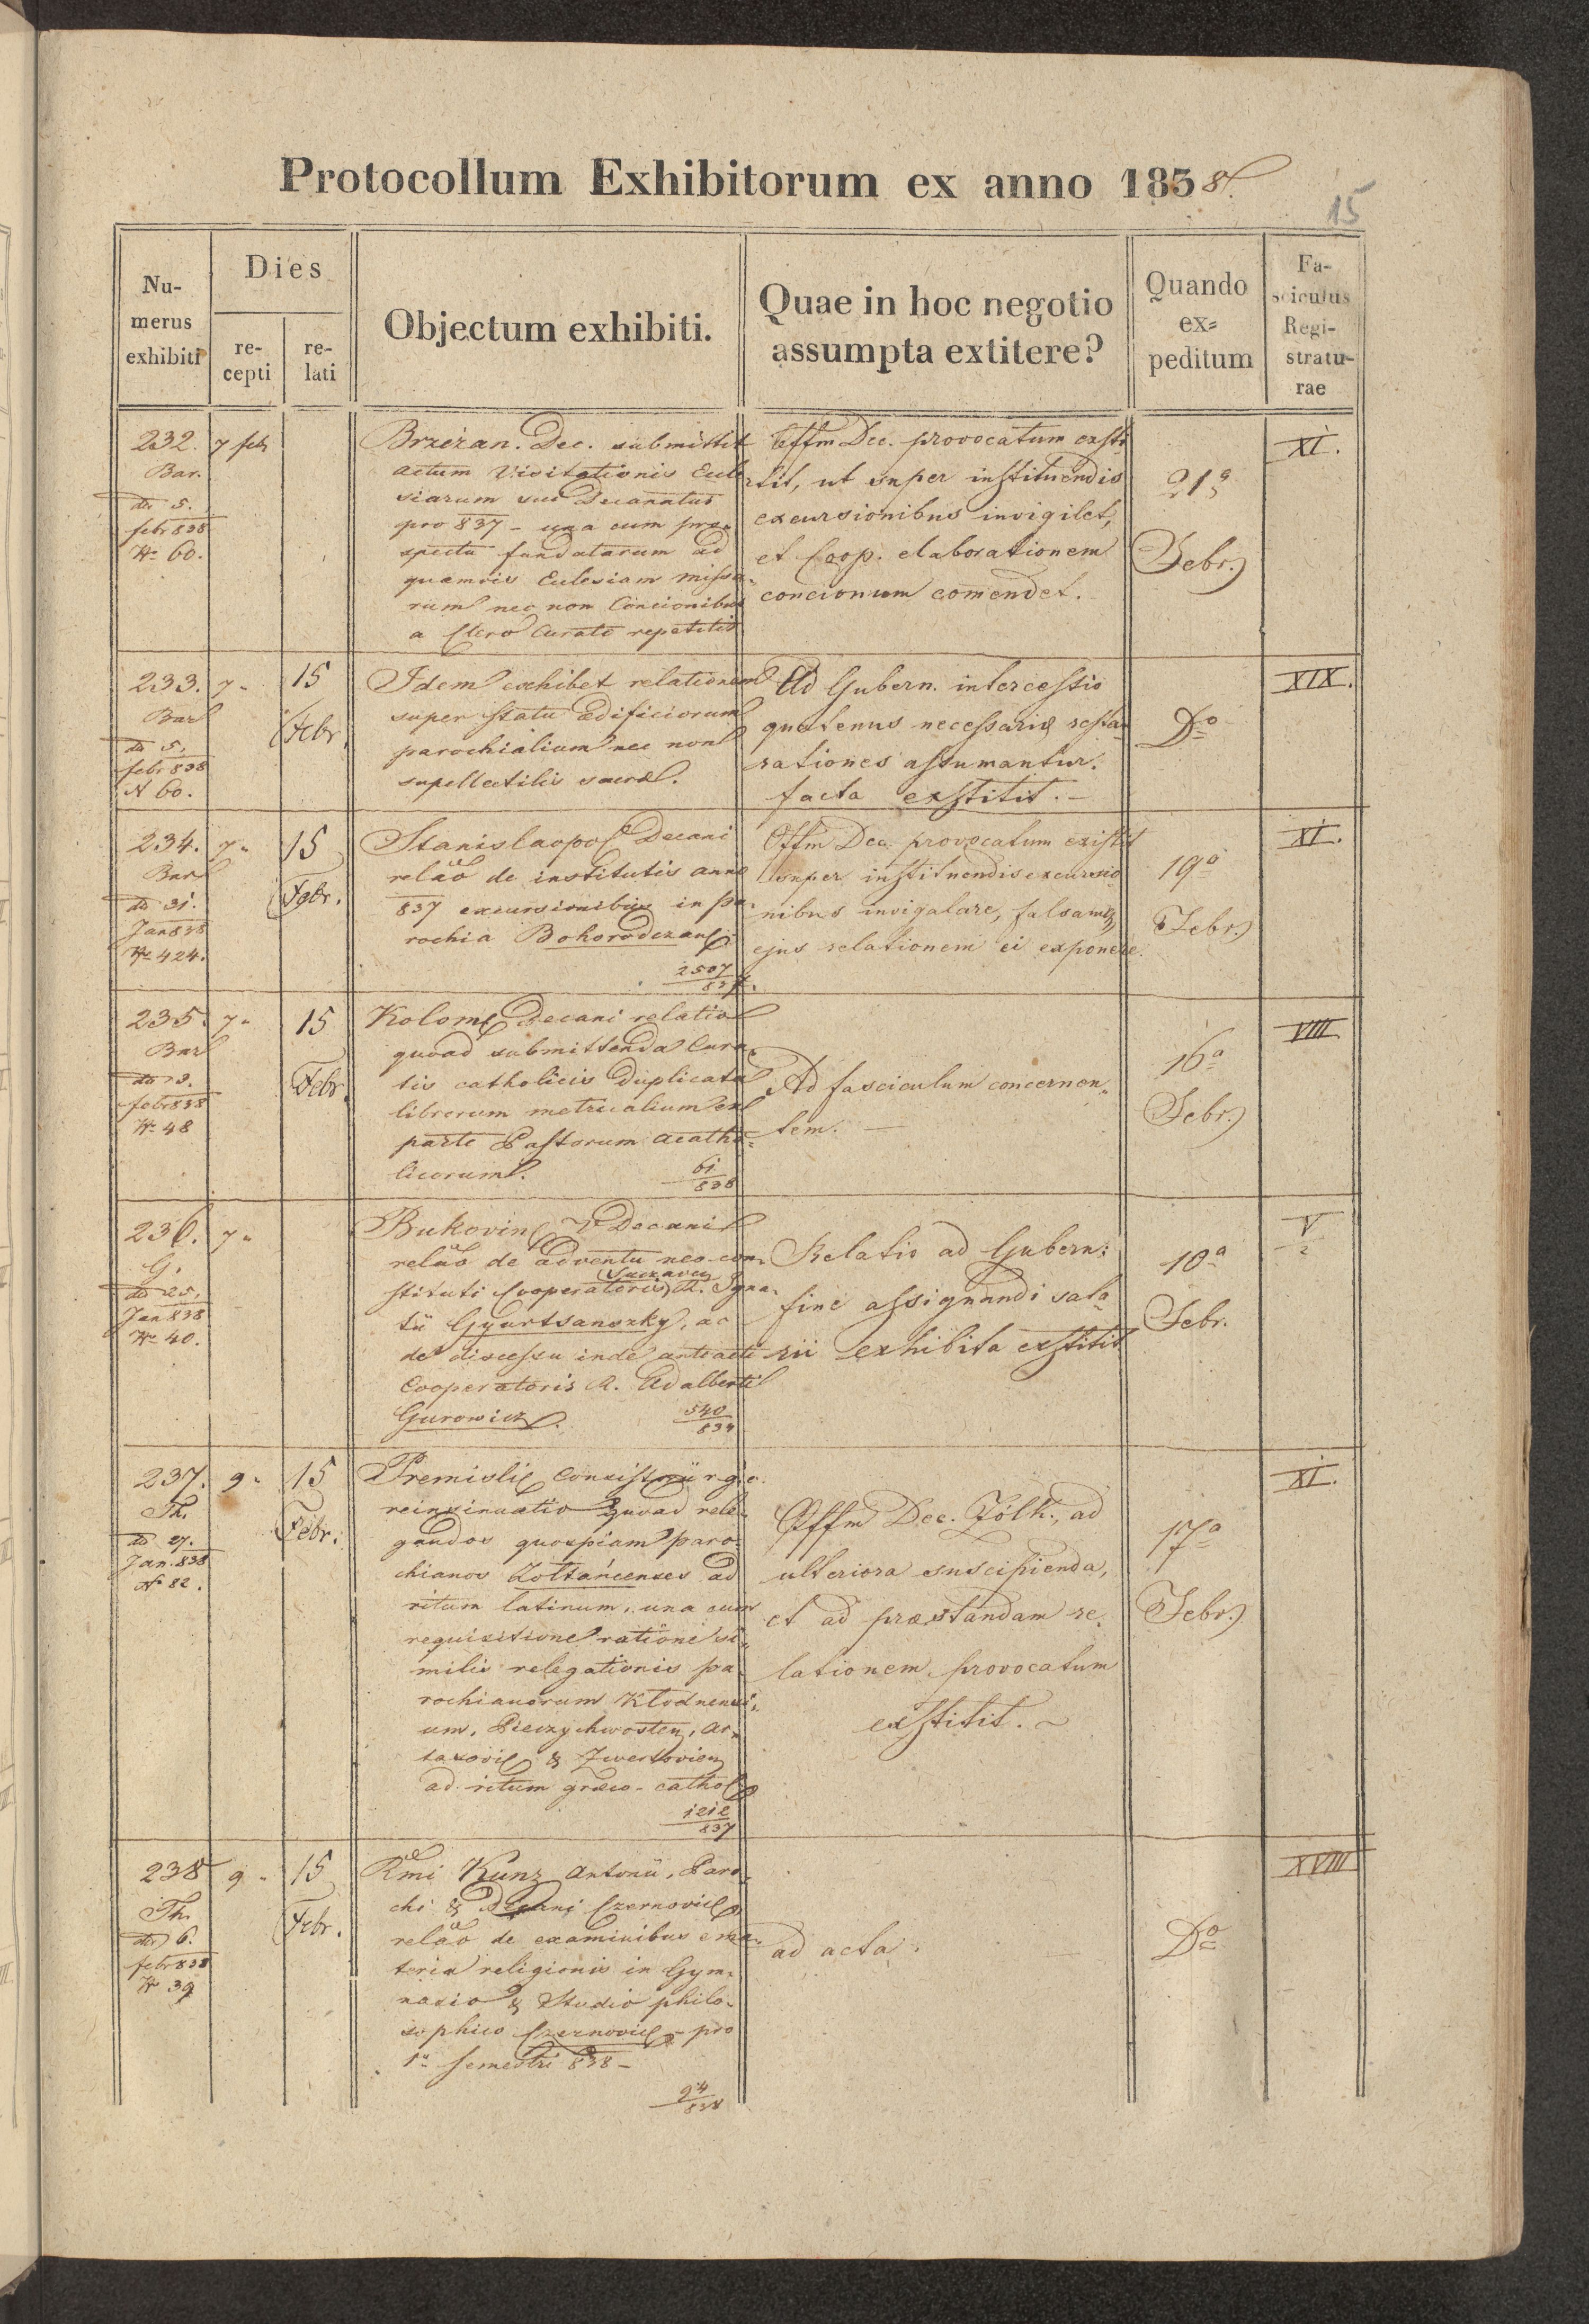 Protocollum Exhibitorum ex anno 1838.
15
Numerus exhibiti
Dies
recepti
relati
Objectum exhibiti.
Quae in hoc negotio
assumpta extitere?
Quando
ex=
peditum
Fa-
sciculus
Regi-
stratu-
rae
232. 7 feb
Bar.
do 5.
febr 838
No 60.
Brzezan. Dec. submittit
actum Visitationis Eccle-
siarum sui Decanatus
pro 837 - una cum pro-
spectu fundatarum ad
quamvis Ecclesiam missa-
rum nec non Concionibus
a Clero Curato repetitis
Offm Dec. provocatum exsti-
tit, ut super instituendis
excursionibus invigilet,
et Coop. elaborationem
concionum comendet.
21a
Febr.
XI.
233. 7 "
Bar
do 5.
febr 838
N 60.
15
Febr.
Idem exhibet relationem
super statu ædificiorum
parochialium nec non
supellectilis sacræ.
Ad Gubern. intercessio
quatenus necessariæ resta-
rationes assumantur.
facta exstitit. -
Do
XIX.
234. 7 "
Bar
do 31.
Jan 838
No 424.
15
Febr.
Stanislaopol Decani
relão de institutis anno
837 excursionibus in pa-
rochia Bohorodczan
2507
837.
Offm Dec. provocatum existit
super instituendis excursio
nibus invigalare, falsamq
ejus relationem ei exponere.
19a
Febr.
XI.
235. 7 "
Bar
do 3.
febr 838
No 48
15
Febr.
Kolom Decani relatio
quoad submittenda Cura-
tis catholicis Duplicata
librorum metricalium ex
parte Pastorum acatho-
licorum.
61
838
Ad fasciculum concernen-
tem. -
16a
Febr.
VIII
236. 7 "
G.
do 25.
Jan 838
No 40.
Bukovin V. Decani
relão de adventu neo-con-
Suczavien
stituti Cooperatoris R. Igna-
tii Gyurtsanszky, ac
de discessu inde anteacti
Cooperatoris R. Adalberti
Gurowicz.
540
834
Relatio ad Gubern:
fine assignandi sala-
rii exhibita exstitit
10a
Febr.
V
2
237. 9 "
Th.
do 27.
Jan. 838
No 82.
15
Febr.
Premisli Consistorii r. g. c.
reinsinuatio quoad rele-
gandos quospiam paro-
chianos Zoltańcenses ad
ritum latinum, una cum
requisitione ratione si-
milis relegationis pa-
rochianorum Kłodnensi-
um, Pieczychwosten, Ar-
tasovi & Zwertovien
ad ritum græco-cathol
1212
837
Offm Dec. Zólk., ad
ulteriora suscipienda,
et ad præstandam re-
lationem provocatum
exstitit. ~
17a
Febr.
XI.
238 9 "
Th.
do 6.
febr 838
No 39
15
Febr.
Rmi Kunz Antonii, Paro-
chi & Decani Czernovic
relão de examinibus e ma-
teria religionis in Gym-
nasio & Studio philo-
sophico Czernovic - pro
1o semestri 838 -
24
838
ad acta.
Do
XVIII